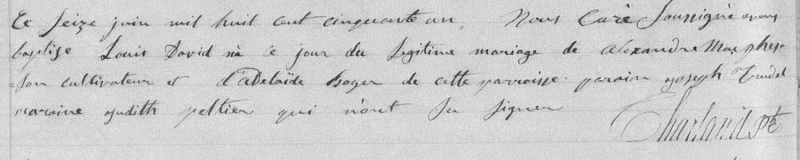 Ce Seize juin mil huit cent cinquante un, Nous Curé Soussigné avons
baptisé Louis David né ce jour du légitime mariage de Alexandre Macpher-
son cultivateur et d'Adelaïde Boyer de cette parroisse. parain joseph Trudel
maraine judith peltier qui n'ont su signer
Charland Ptre